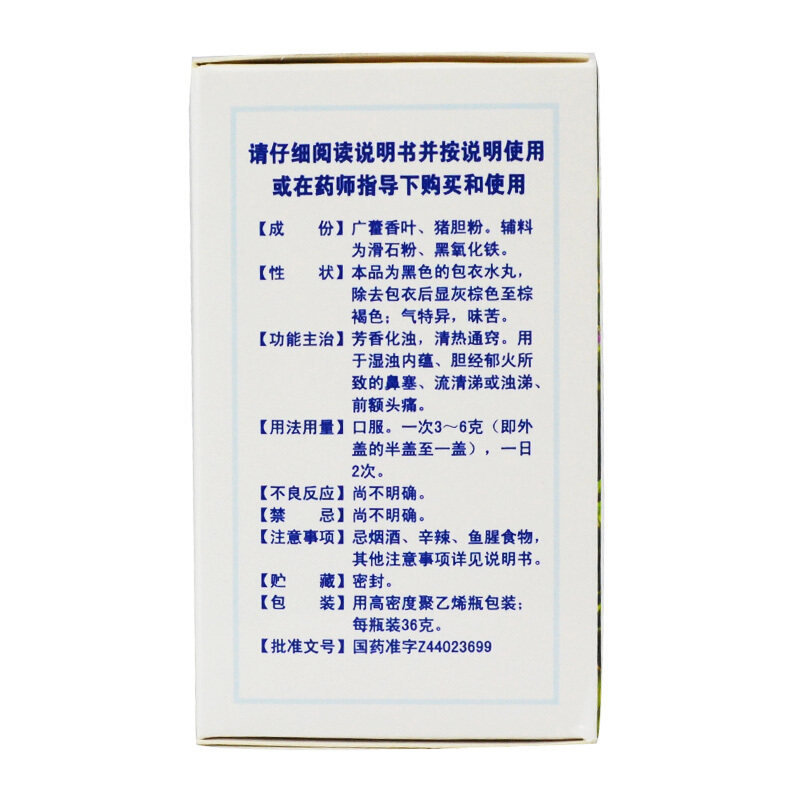 请仔细阅读说明书并按说明使用
或在药师指导下购买和使用
【成 份】广藿香叶、猪胆粉。辅料
为滑石粉、黑氧化铁。
【性 状】本品为黑色的包衣水丸，
除去包衣后显灰棕色至棕
褐色；气特异，味苦。
【功能主治】芳香化浊，清热通窍。用
于湿浊内蕴、胆经郁火所
致的鼻塞、流清涕或浊涕、
前额头痛。
【用法用量】口服。一次3～6克（即外
盖的半盖至一盖），一日
2次。
【不良反应】尚不明确。
【禁 忌】尚不明确。
【注意事项】忌烟酒、辛辣、鱼腥食物，
其他注意事项详见说明书。
【贮 藏】密封。
【包 装】用高密度聚乙烯瓶包装；
每瓶装36克。
【批准文号】国药准字Z44023699